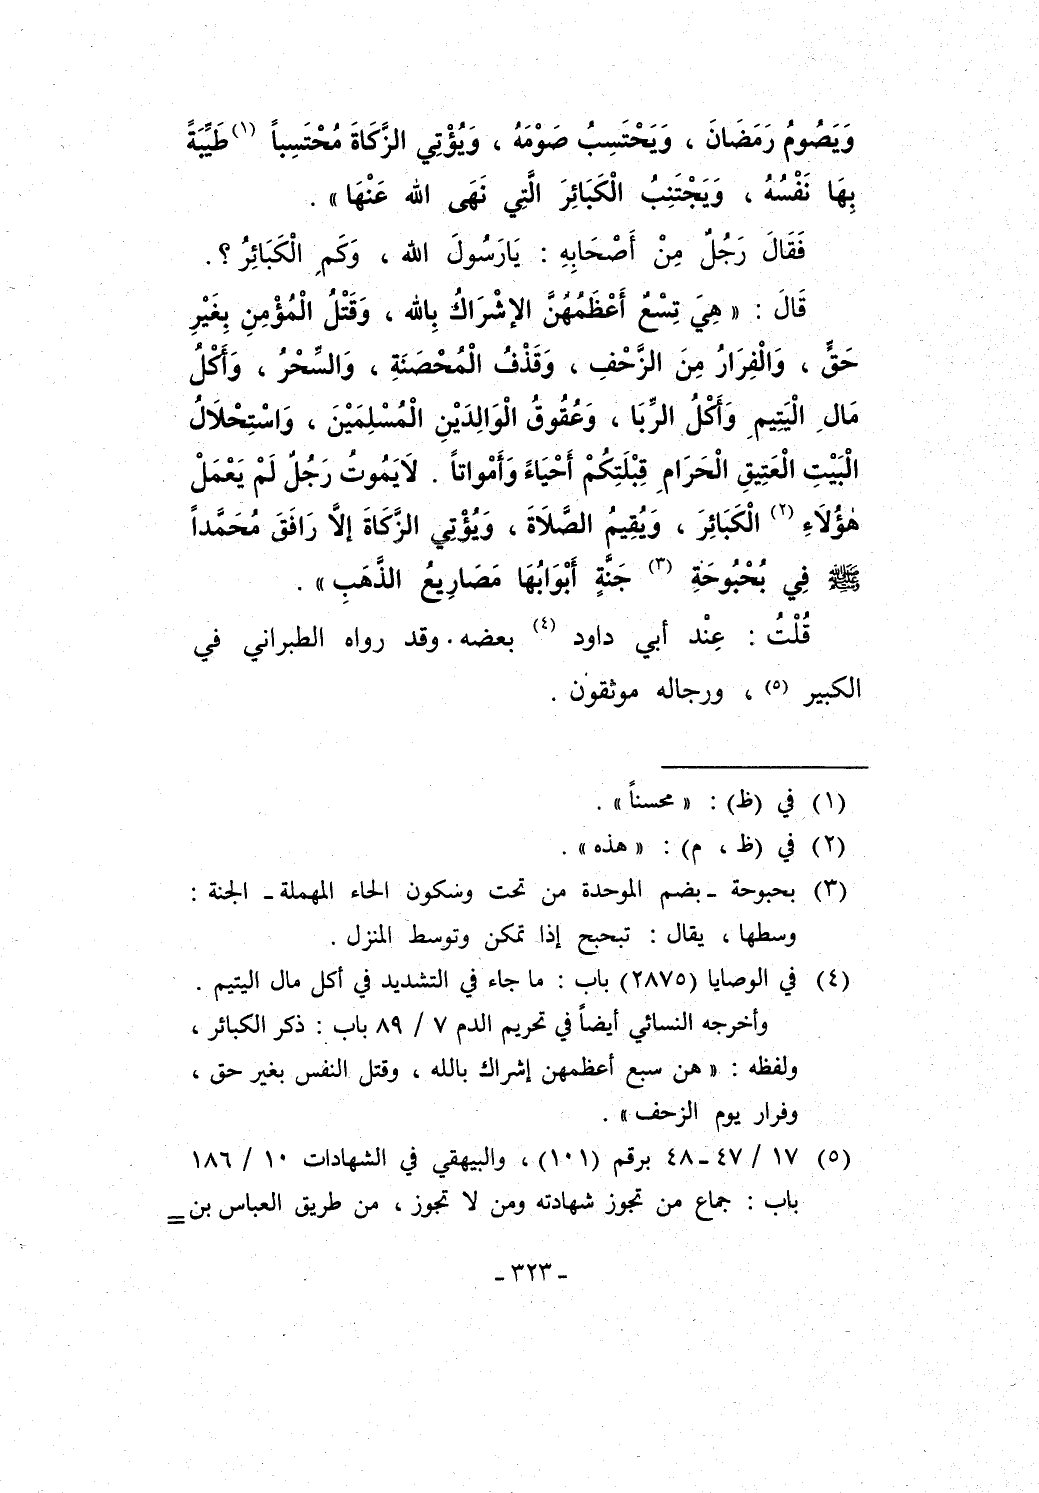 وَيَصُومُ رَمَضَانَ ، وَيَحْتَسِبُ صَوْمَهُ ، وَيُؤْتِي الزَّكَاةَ مُحْتَسِباً (١) طَيِّبَةً
بِهَا نَفْسُهُ ، وَيَجْتَنِبُ الْكَبَائِرَ الَّتِي نَهَى الله عَنْهَا » .
فَقَالَ رَجُلٌ مِنْ أَصْحَابِهِ : يَارَسُولَ الله ، وَكَمِ الْكَبَائِرُ ؟ .
قَالَ : « هِيَ تِسْعٌ أَعْظَمُهُنَّ الإشْرَاكُ بِالله ، وَقَتْلُ الْمُؤْمِنِ بِغَيْرِ
حَقٍّ ، وَالْفِرَارُ مِنَ الزَّحْفِ ، وَقَذْفُ الْمُحْصَنَةِ ، وَالسِّحْرُ ، وَأَكْلُ
مَالِ الْيَتِيمِ وَأَكْلُ الرِّبَا ، وَعُقُوقُ الْوَالِدَيْنِ الْمُسْلِمَيْنَ ، وَاسْتِحْلَالُ
الْبَيْتِ الْعَتِيقِ الْحَرَامِ قِبْلَتِكُمْ أَحْيَاءً وَأَمْوَاتاً . لَايَمُوتُ رَجُلٌ لَمْ يَعْمَلْ
هٰؤُلَاءِ (٢) الْكَبَائِرَ ، وَيُقِيمُ الصَّلَاةَ ، وَيُؤْتِي الزَّكَاةَ إلاَّ رَافَقَ مُحَمَّداً
ﷺ فِي بُحْبُوحَةِ (٣) جَنَّةٍ أَبْوَابُهَا مَصَارِيعُ الذَّهَبِ » .
قُلْتُ : عِنْد أبي داود (٤) بعضه . وقد رواه الطبراني في
الكبير (٥) ، ورجاله موثقون .
(١) في (ظ) : « محسناً » .
(٢) في (ظ ، م) : « هذه » .
(٣) بحبوحة ـ بضم الموحدة من تحت وسكون الحاء المهملة ـ الجنة :
وسطها ، يقال : تبحبح إذا تمكن وتوسط المنزل .
(٤) في الوصايا (٢٨٧٥) باب : ما جاء في التشديد في أكل مال اليتيم .
وأخرجه النسائي أيضاً في تحريم الدم ٧ / ٨٩ باب : ذكر الكبائر ،
ولفظه : « هن سبع أعظمهن إشراك بالله ، وقتل النفس بغير حق ،
وفرار يوم الزحف » .
(٥) ١٧ / ٤٧ ـ ٤٨ برقم (١٠١) ، والبيهقي في الشهادات ١٠ / ١٨٦
باب : جماع من تجوز شهادته ومن لا تجوز ، من طريق العباس بن =
ـ ٣٢٣ ـ